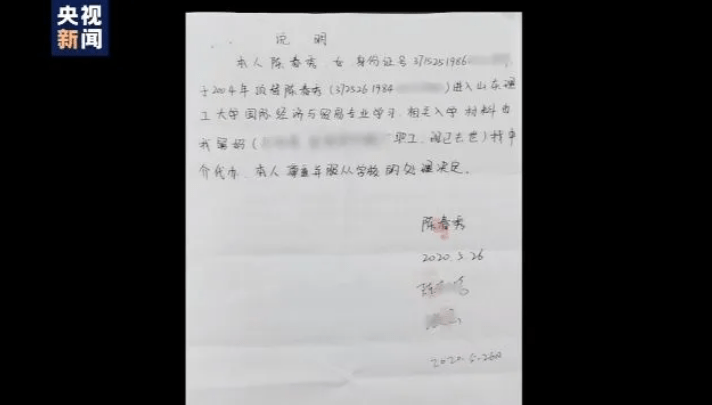 央视
新闻
说 明
本人陈春秀 女 身份证号 3715251986
于2004年顶替陈春秀(372526 1984 )进入山东理
工大学国际经济与贸易专业学习,相关入学材料由
我舅妈( 职工,现已去世)找中
介代办.本人尊重并服从学校的处理决定。
陈春秀
2020.5.26
2020.5.26日